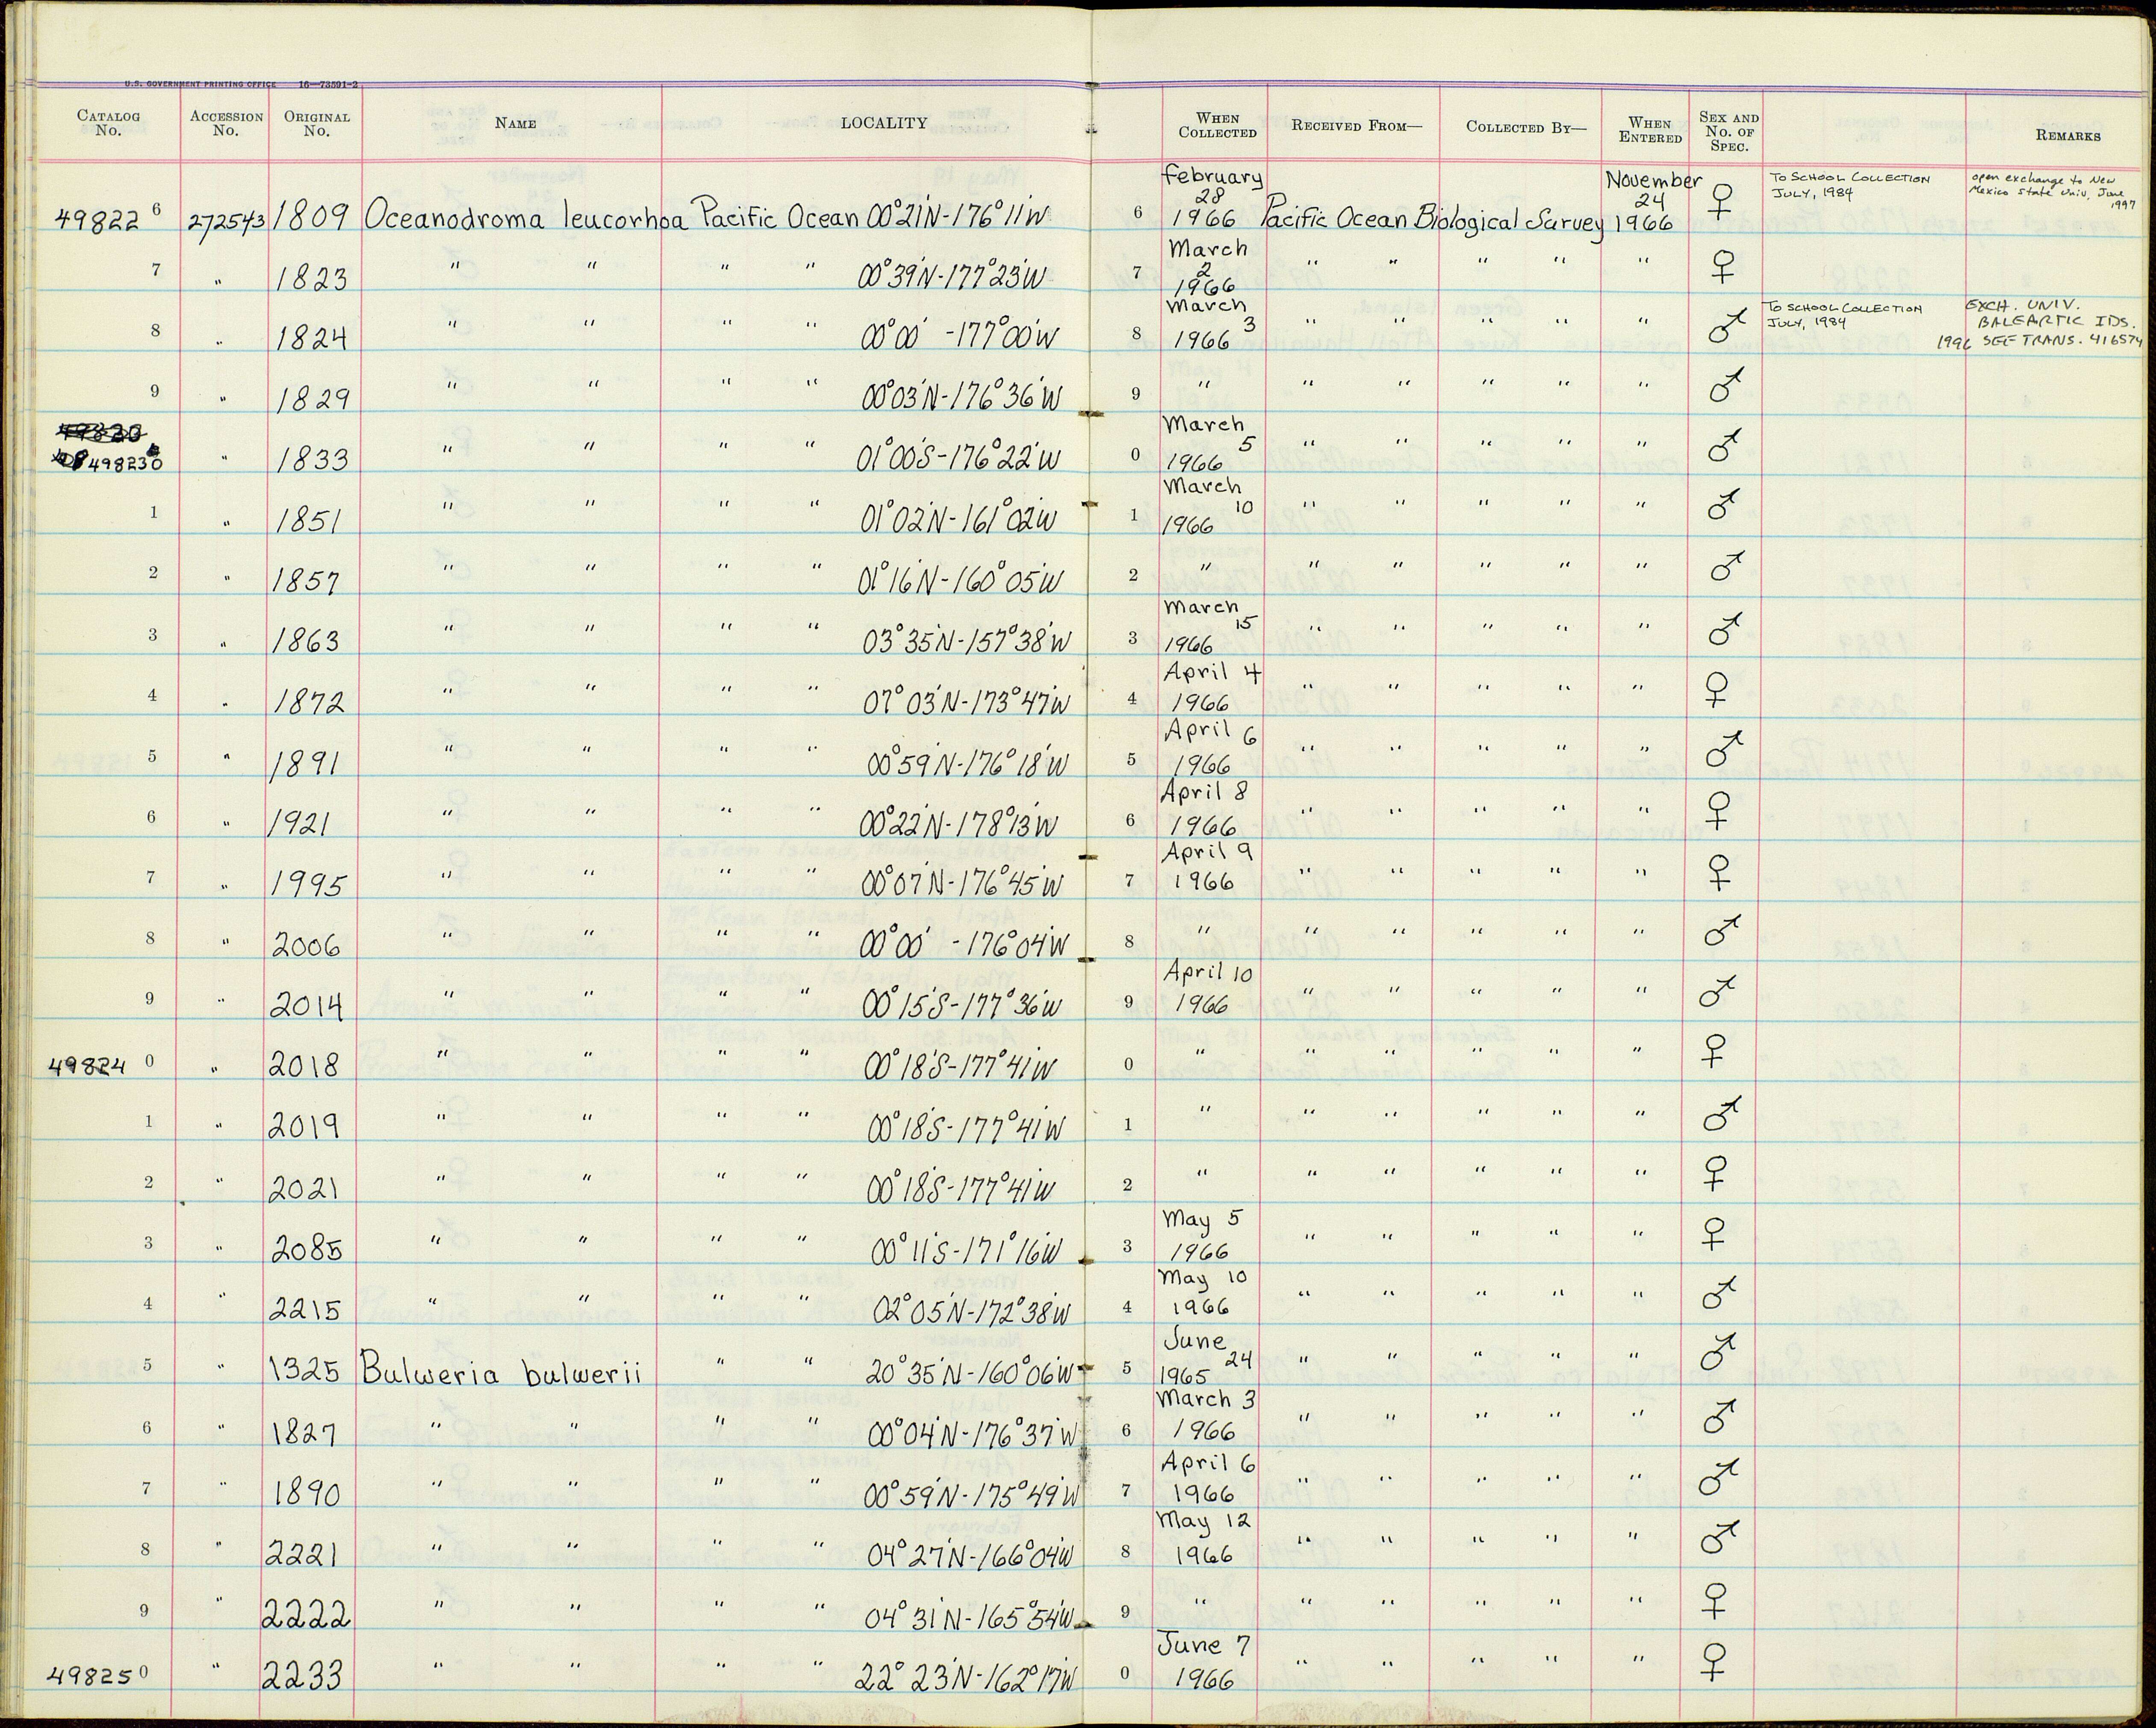 U.S. GOVERNMENT PRINTING OFFICE 16—73591-2
CATALOG No. ACCESSION No. ORIGINAL No. NAME LOCALITY WHEN COLLECTED RECEIVED FROM— COLLECTED BY— WHEN ENTERED SEX AND No. OF SPEC. REMARKS
498226 272543 1809 Oceanodroma leucorhoa Pacific Ocean 00°21'N-176°11'W 6 February 28 1966 Pacific Ocean Biological Survey November 24 1966 ♀ To School Collection July, 1984 open exchange to New Mexico State Univ, June 1997
7 " 1823 " " " " 00°39'N-177°23'W 7 March 2 1966 " " " " " ♀
8 " 1824 " " " " 00°00' -177°00'W 8 March 3 1966 " " " " " ♂ To School Collection July, 1984 EXCH. UNIV. BALEARTIC IDS. 1996 SEE TRANS. 416574
9 " 1829 " " " " 00°03'N-176°36'W 9 " " " " " " ♂
498230 " 1833 " " " " 01°00'S-176°22'W 0 March 5 1966 " " " " " ♂
1 " 1851 " " " " 01°02'N-161°02'W 1 March 10 1966 " " " " " ♂
2 " 1857 " " " " 01°16'N-160°05'W 2 " " " " " " ♂
3 " 1863 " " " " 03°35'N-157°38'W 3 March 15 1966 " " " " " ♂
4 " 1872 " " " " 07°03'N-173°47'W 4 April 4 1966 " " " " " ♀
5 " 1891 " " " " 00°59'N-176°18'W 5 April 6 1966 " " " " " ♂
6 " 1921 " " " " 00°22'N-178°13'W 6 April 8 1966 " " " " " ♀
7 " 1995 " " " " 00°07'N-176°45'W 7 April 9 1966 " " " " " ♀
8 " 2006 " " " " 00°00' -176°04'W 8 " " " " " " ♂
9 " 2014 " " " " 00°15'S-177°36'W 9 April 10 1966 " " " " " ♂
498240 " 2018 " " " " 00°18'S-177°41'W 0 " " " " " " ♀
1 " 2019 " " " " 00°18'S-177°41'W 1 " " " " " " ♂
2 " 2021 " " " " 00°18'S-177°41'W 2 " " " " " " ♀
3 " 2085 " " " " 00°11'S-171°16'W 3 May 5 1966 " " " " " ♀
4 " 2215 " " " " 02°05'N-172°38'W 4 May 10 1966 " " " " " ♂
5 " 1325 Bulweria bulwerii " " 20°35'N-160°06'W 5 June 24 1965 " " " " " ♂
6 " 1827 " " " " 00°04'N-176°37'W 6 March 3 1966 " " " " " ♂
7 " 1890 " " " " 00°59'N-175°49'W 7 April 6 1966 " " " " " ♂
8 " 2221 " " " " 04°27'N-166°04'W 8 May 12 1966 " " " " " ♂
9 " 2222 " " " " 04°31'N-165°54'W 9 " " " " " " ♀
498250 " 2233 " " " " 22°23'N-162°17'W 0 June 7 1966 " " " " " ♀